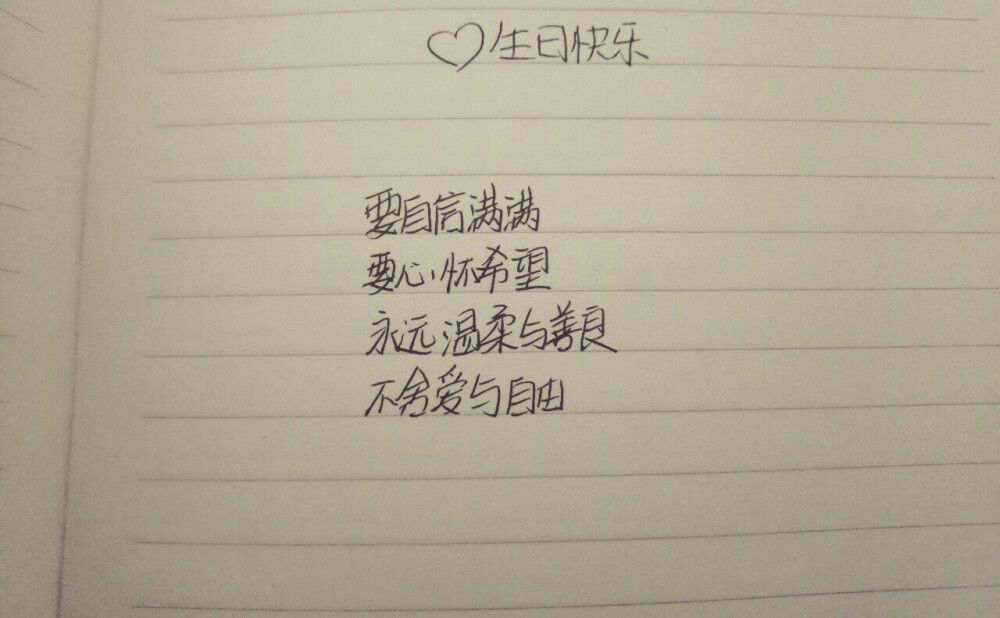 ♡生日快乐
要自信满满
要心怀希望
永远温柔与善良
不舍爱与自由